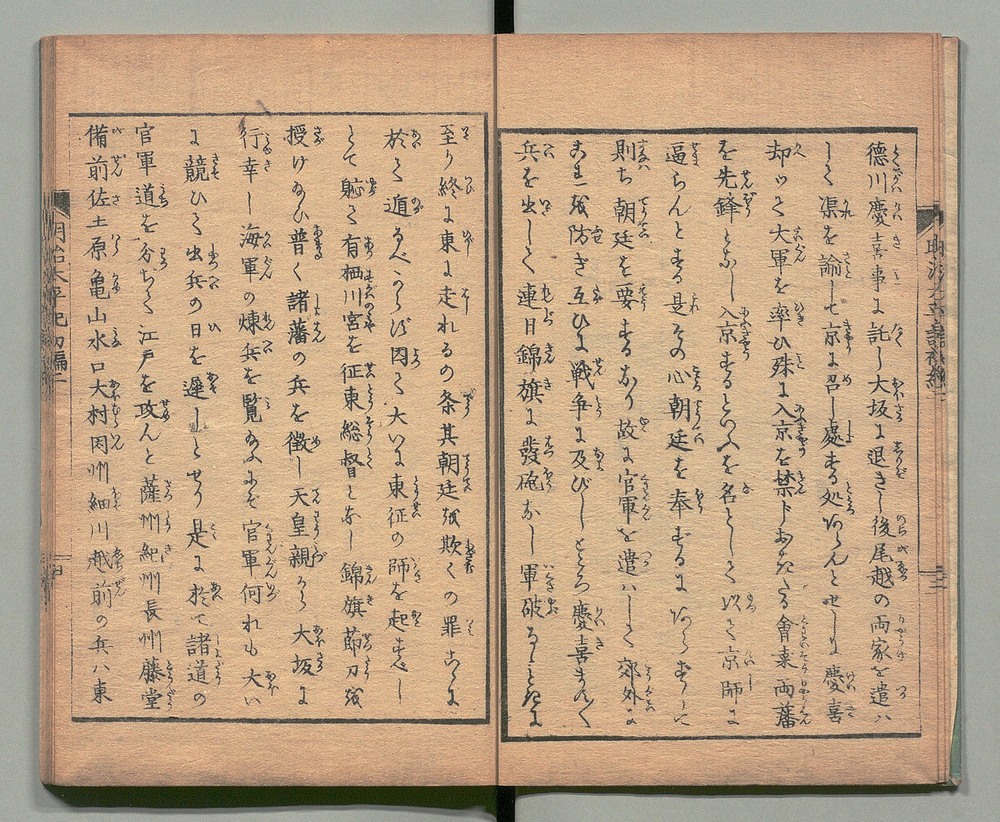 徳川慶喜事に託し大坂に退きし後尾越の両家を遣ハ
して渠を諭して京に召し處する処あらんとせしに慶喜
却つて大軍を率ひ殊に入京を禁じおかれたる會桒両藩
を先鋒となし入京するといふを名として以て京師に
逼らんとする是その心朝廷を奉ずるにあらずして
則ち朝廷を要するなり故に官軍を遣ハして郊外に
これを防ぎ互ひに戦争に及びしところ慶喜ます〱
兵を出して連日錦旗に發砲なし軍破るゝときに
至り終に東に走れるの条其朝廷を欺くの罪こゝに
於て遁るべからず因て大いに東征の師を起すべし
とて軈て有栖川宮を征東総督となし錦旗節刀を
授け給ひ普く諸藩の兵を徴し天皇親から大坂に
行幸し海軍の煉兵を覧給ふにぞ官軍何れも大い
に競ひて出兵の日を遅しとせり是に於て諸道の
官軍道を分ちて江戸を攻んと薩州紀州長州藤堂
備前佐土原亀山水口大村因州細川越前の兵ハ東
明治太平記初編二